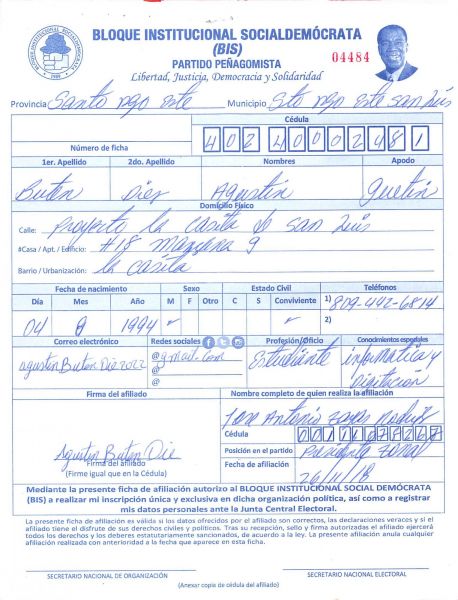 BLOQUE INSTITUCIONAL SOCIALDEMÓCRATA
(BIS)
PARTIDO PEÑAGOMISTA
04484
Libertad, Justicia, Democracia y Solidaridad
Provincia Santo Dgo este Municipio Sto Dgo este San Luis
Cédula
Número de ficha 402 4000248 1
1er. Apellido 2do. Apellido Nombres Apodo
Buten Diez Agustin
Domicilio Físico
Calle: Proyecto la Casita de San Luis
#Casa / Apt. / Edificio: #18 Manzana 9
Barrio / Urbanización: la Casita
Fecha de nacimiento Sexo Estado Civil Teléfonos
Día Mes Año M F Otro C S Conviviente 1) 809-492-6814
04 1994 ✓ ✓ 2)
Correo electrónico Redes sociales Profesión/Oficio Conocimientos especiales
@gmail.com Estudiante informatica y
@ Digitación
@
Firma del afiliado Nombre completo de quien realiza la afiliación
Jose Antonio
Cédula
Agustin Buten Die Posición en el partido Presidente Zonal
Firma del afiliado
(Firma igual que en la Cédula) Fecha de afiliación 26/11/18
Mediante la presente ficha de afiliación autorizo al BLOQUE INSTITUCIONAL SOCIAL DEMÓCRATA
(BIS) a realizar mi inscripción única y exclusiva en dicha organización política, así como a registrar
mis datos personales ante la Junta Central Electoral.
La presente ficha de afiliación es válida si los datos ofrecidos por el afiliado son correctos, las declaraciones veraces y si el
afiliado tiene el disfrute de sus derechos civiles y políticos. Tras su recepción, sello y firma autorizados el afiliado ejercerá
todos los derechos y los deberes estatutariamente sancionados, de acuerdo a la ley. La presente afiliación anula cualquier
afiliación realizada con anterioridad a la fecha que aparece en esta ficha.
SECRETARIO NACIONAL DE ORGANIZACIÓN SECRETARIO NACIONAL ELECTORAL
(Anexar copia de cédula del afiliado)